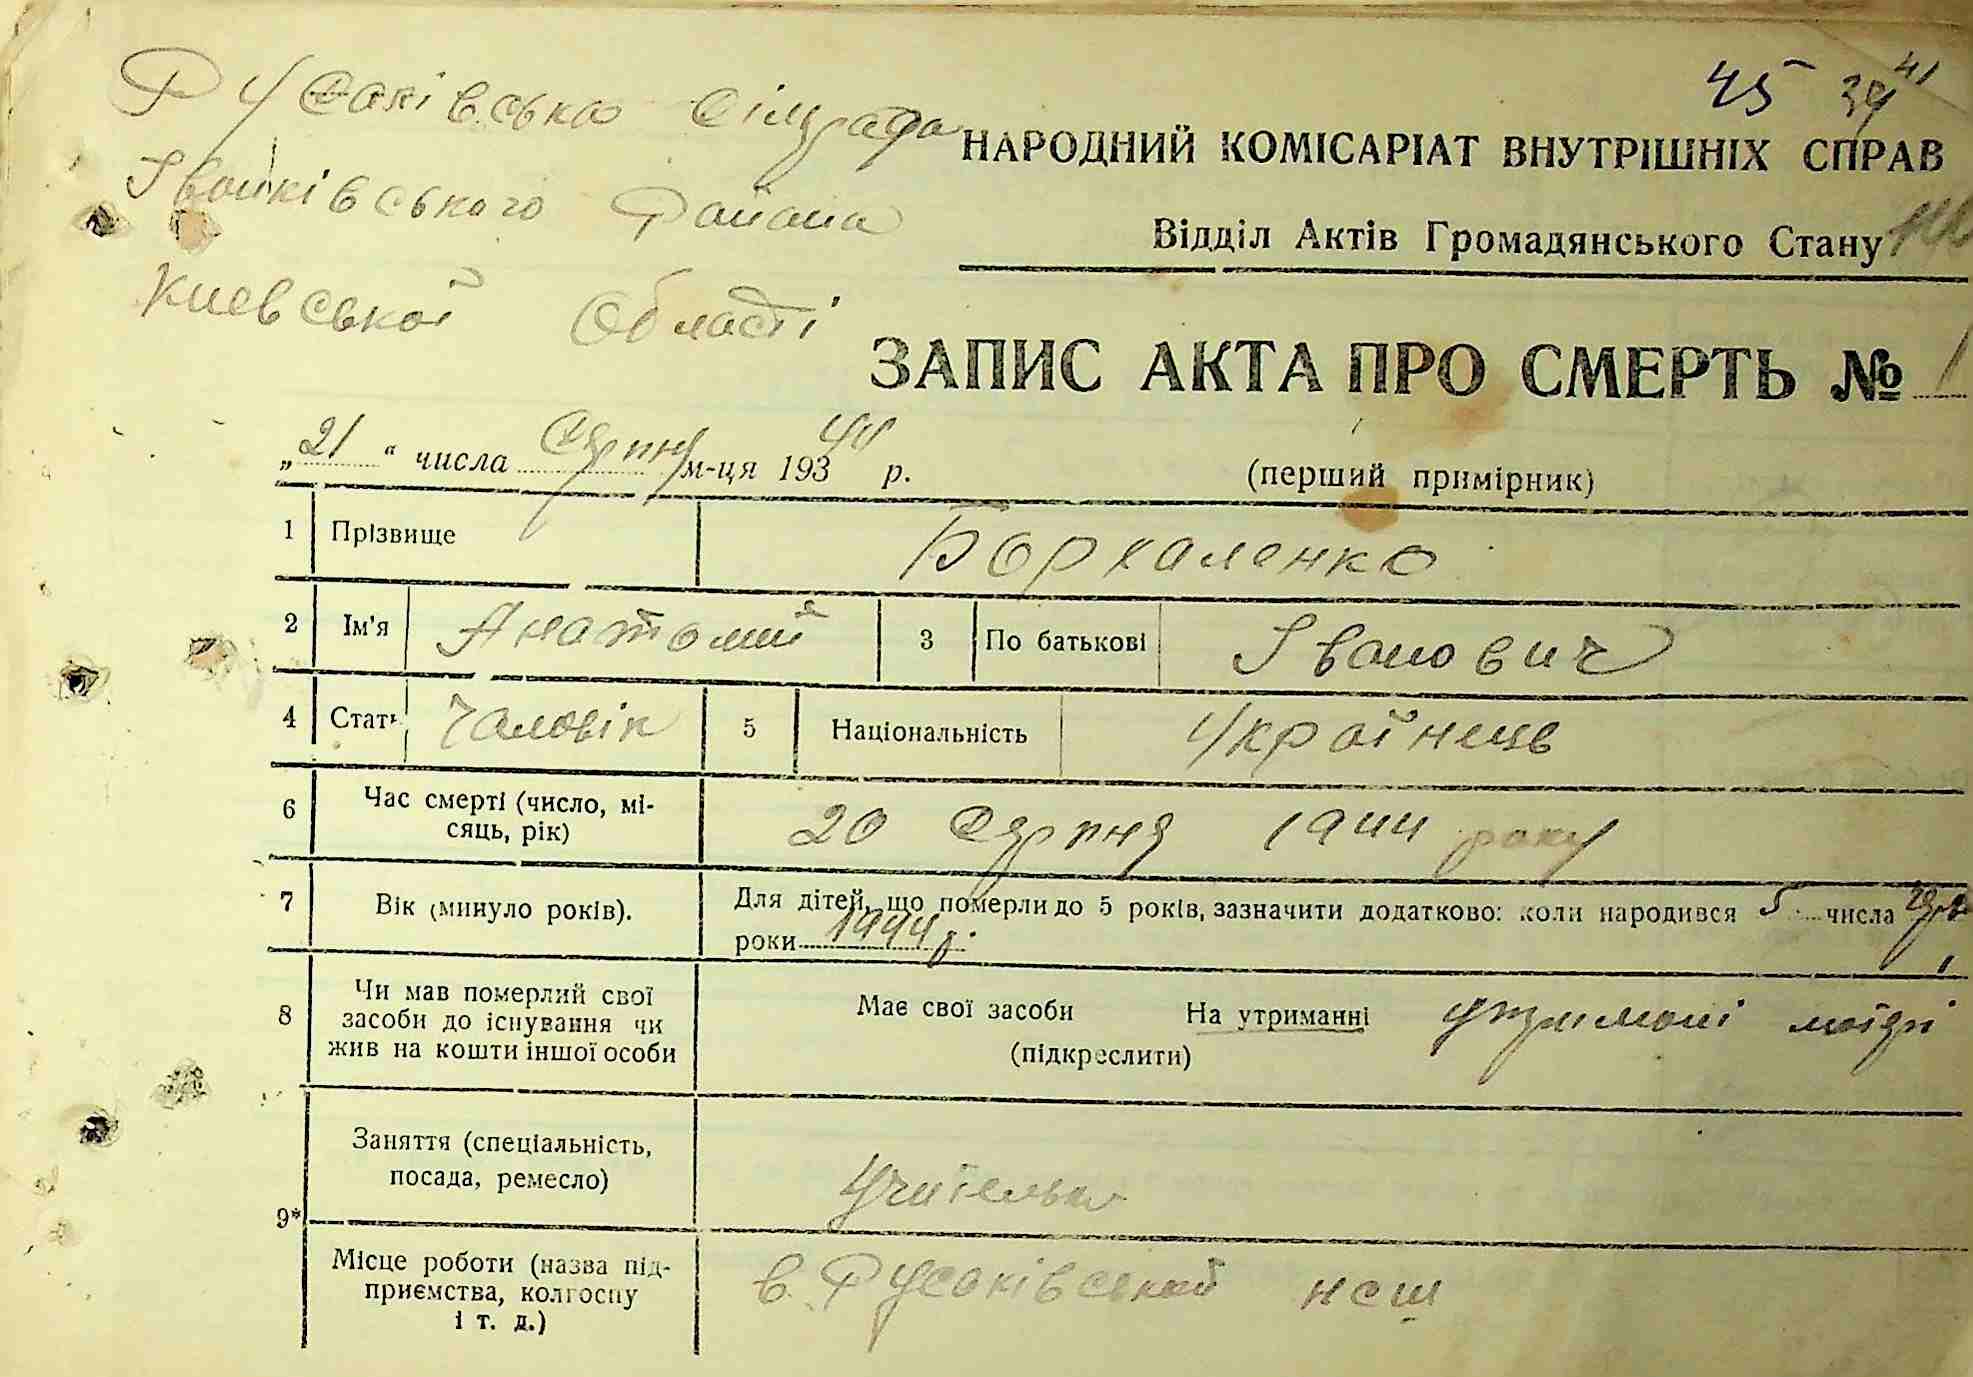 45 39 41
Русаківська сілрада
НАРОДНИЙ КОМІСАРІАТ ВНУТРІШНІХ СПРАВ
Іванківського Района
Відділ Актів Громадянського Стану
Киевської Області
ЗАПИС АКТА ПРО СМЕРТЬ № 1
„21“ числа Серпня м-ця 1934 44 р.
(перший примірник)
1 Прізвище Бархаленко
2 Ім'я Анатолий 3 По батькові Іванович
4 Стать Чоловік 5 Національність Українець
6 Час смерті (число, мі-
сяць, рік) 20 Серпня 1944 року
7 Вік (минуло років). Для дітей, що померли до 5 років, зазначити додатково: коли народився 5 числа
роки 1944 р.
8 Чи мав померлий свої
засоби до існування чи
жив на кошти іншої особи
Має свої засоби На утриманні утримані матірі
(підкреслити)
Заняття (спеціальність,
посада, ремесло) Учителька
9*
Місце роботи (назва під-
приємства, колгоспу
і т. д.)
в Русаківській нсш